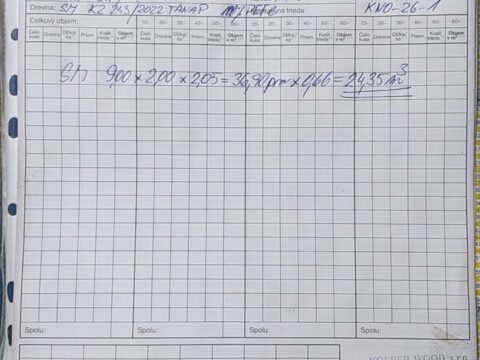 Drevina: SM KZ 245/2022 TANAP trieda: KNO-26-1
Celkový objem: 10- 20- 30- 40- 50- 60+ 10- 20- 30- 40- 50- 60+ 10- 20- 30- 40- 50- 60+
Číslo kusa Drevina Dĺžka/ks Priem. Kvalit. trieda Objem v m³ Číslo kusa Drevina Dĺžka/ks Priem. Kvalit. trieda Objem v m³ Číslo kusa Drevina Dĺžka/ks Priem. Kvalit. trieda Objem v m³ Číslo kusa Drevina Dĺžka/ks Priem. Kvalit. trieda Objem v m³
9,00 × 2,00 × 2,05 = 36,90 prm × 0,66 = 24,35 m³
Spolu: Spolu: Spolu: Spolu: